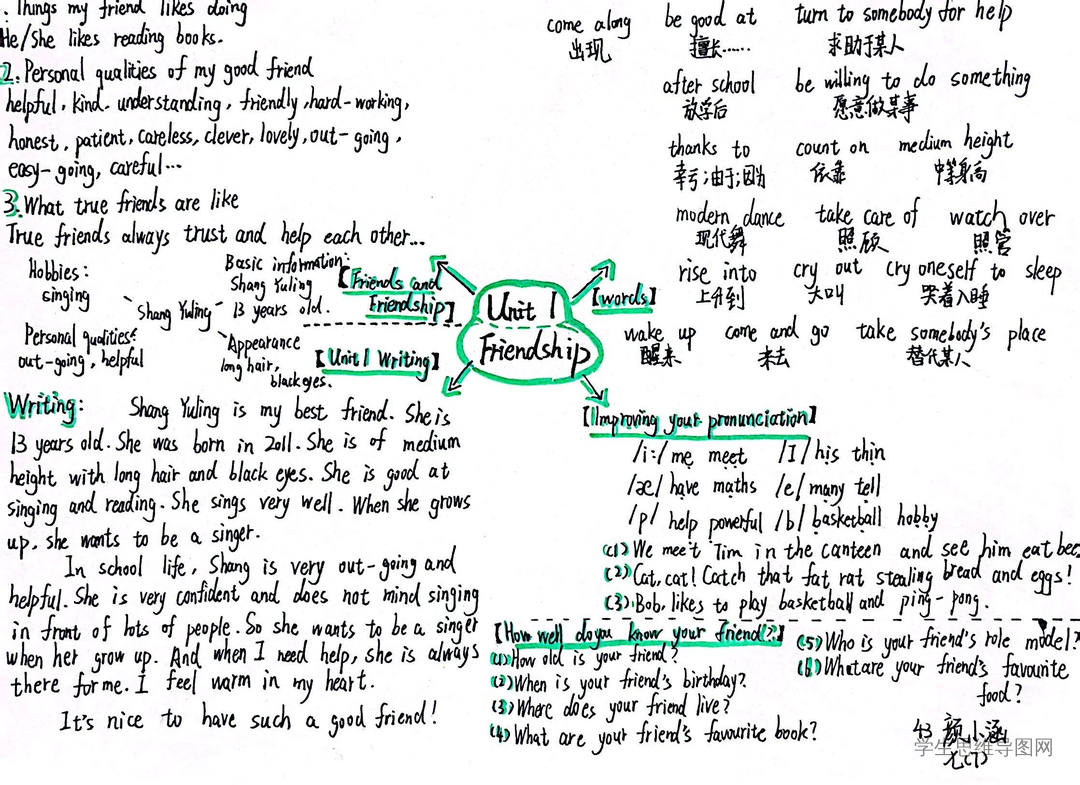 . Things my friend likes doing
He/She likes reading books.
2. Personal qualities of my good friend
helpful, kind. understanding, friendly, hard-working,
honest, patient, careless, clever, lovely, out-going,
easy-going, careful...
3. What true friends are like
True friends always trust and help each other...
Hobbies:
singing
Personal qualities:
out-going, helpful
Shang Yuling
Basic information:
Shang Yuling
13 years old.
Appearance
long hair,
black eyes.
【Friends and
Friendship】
【Unit 1 Writing】
Unit 1
Friendship
【words】
come along
出现
be good at
擅长……
turn to somebody for help
求助于某人
after school
放学后
be willing to do something
愿意做某事
thanks to
幸亏;由于;因为
count on
依靠
medium height
中等身高
modern dance
现代舞
take care of
照顾
watch over
照管
rise into
上升到
cry out
大叫
cry oneself to sleep
哭着入睡
wake up
醒来
come and go
来去
take somebody's place
替代某人
Writing: Shang Yuling is my best friend. She is
13 years old. She was born in 2011. She is of medium
height with long hair and black eyes. She is good at
singing and reading. She sings very well. When she grows
up, she wants to be a singer.
In school life, Shang is very out-going and
helpful. She is very confident and does not mind singing
in front of lots of people. So she wants to be a singer
when her grow up. And when I need help, she is always
there for me. I feel warm in my heart.
It's nice to have such a good friend!
【Improving your pronunciation】
/i:/ me meet /I/ his thin
/æ/ have maths /e/ many tell
/p/ help powerful /b/ basketball hobby
(1) We meet Tim in the canteen and see him eat bee
(2) Cat, cat! Catch that fat rat stealing bread and eggs!
(3) Bob, likes to play basketball and ping-pong.
【How well do you know your friend?】
(1) How old is your friend?
(2) When is your friend's birthday?
(3) Where does your friend live?
(4) What are your friend's favourite book?
(5) Who is your friend's role model?
(6) What are your friend's favourite
food?
43 颜小涵
学生思维导图网